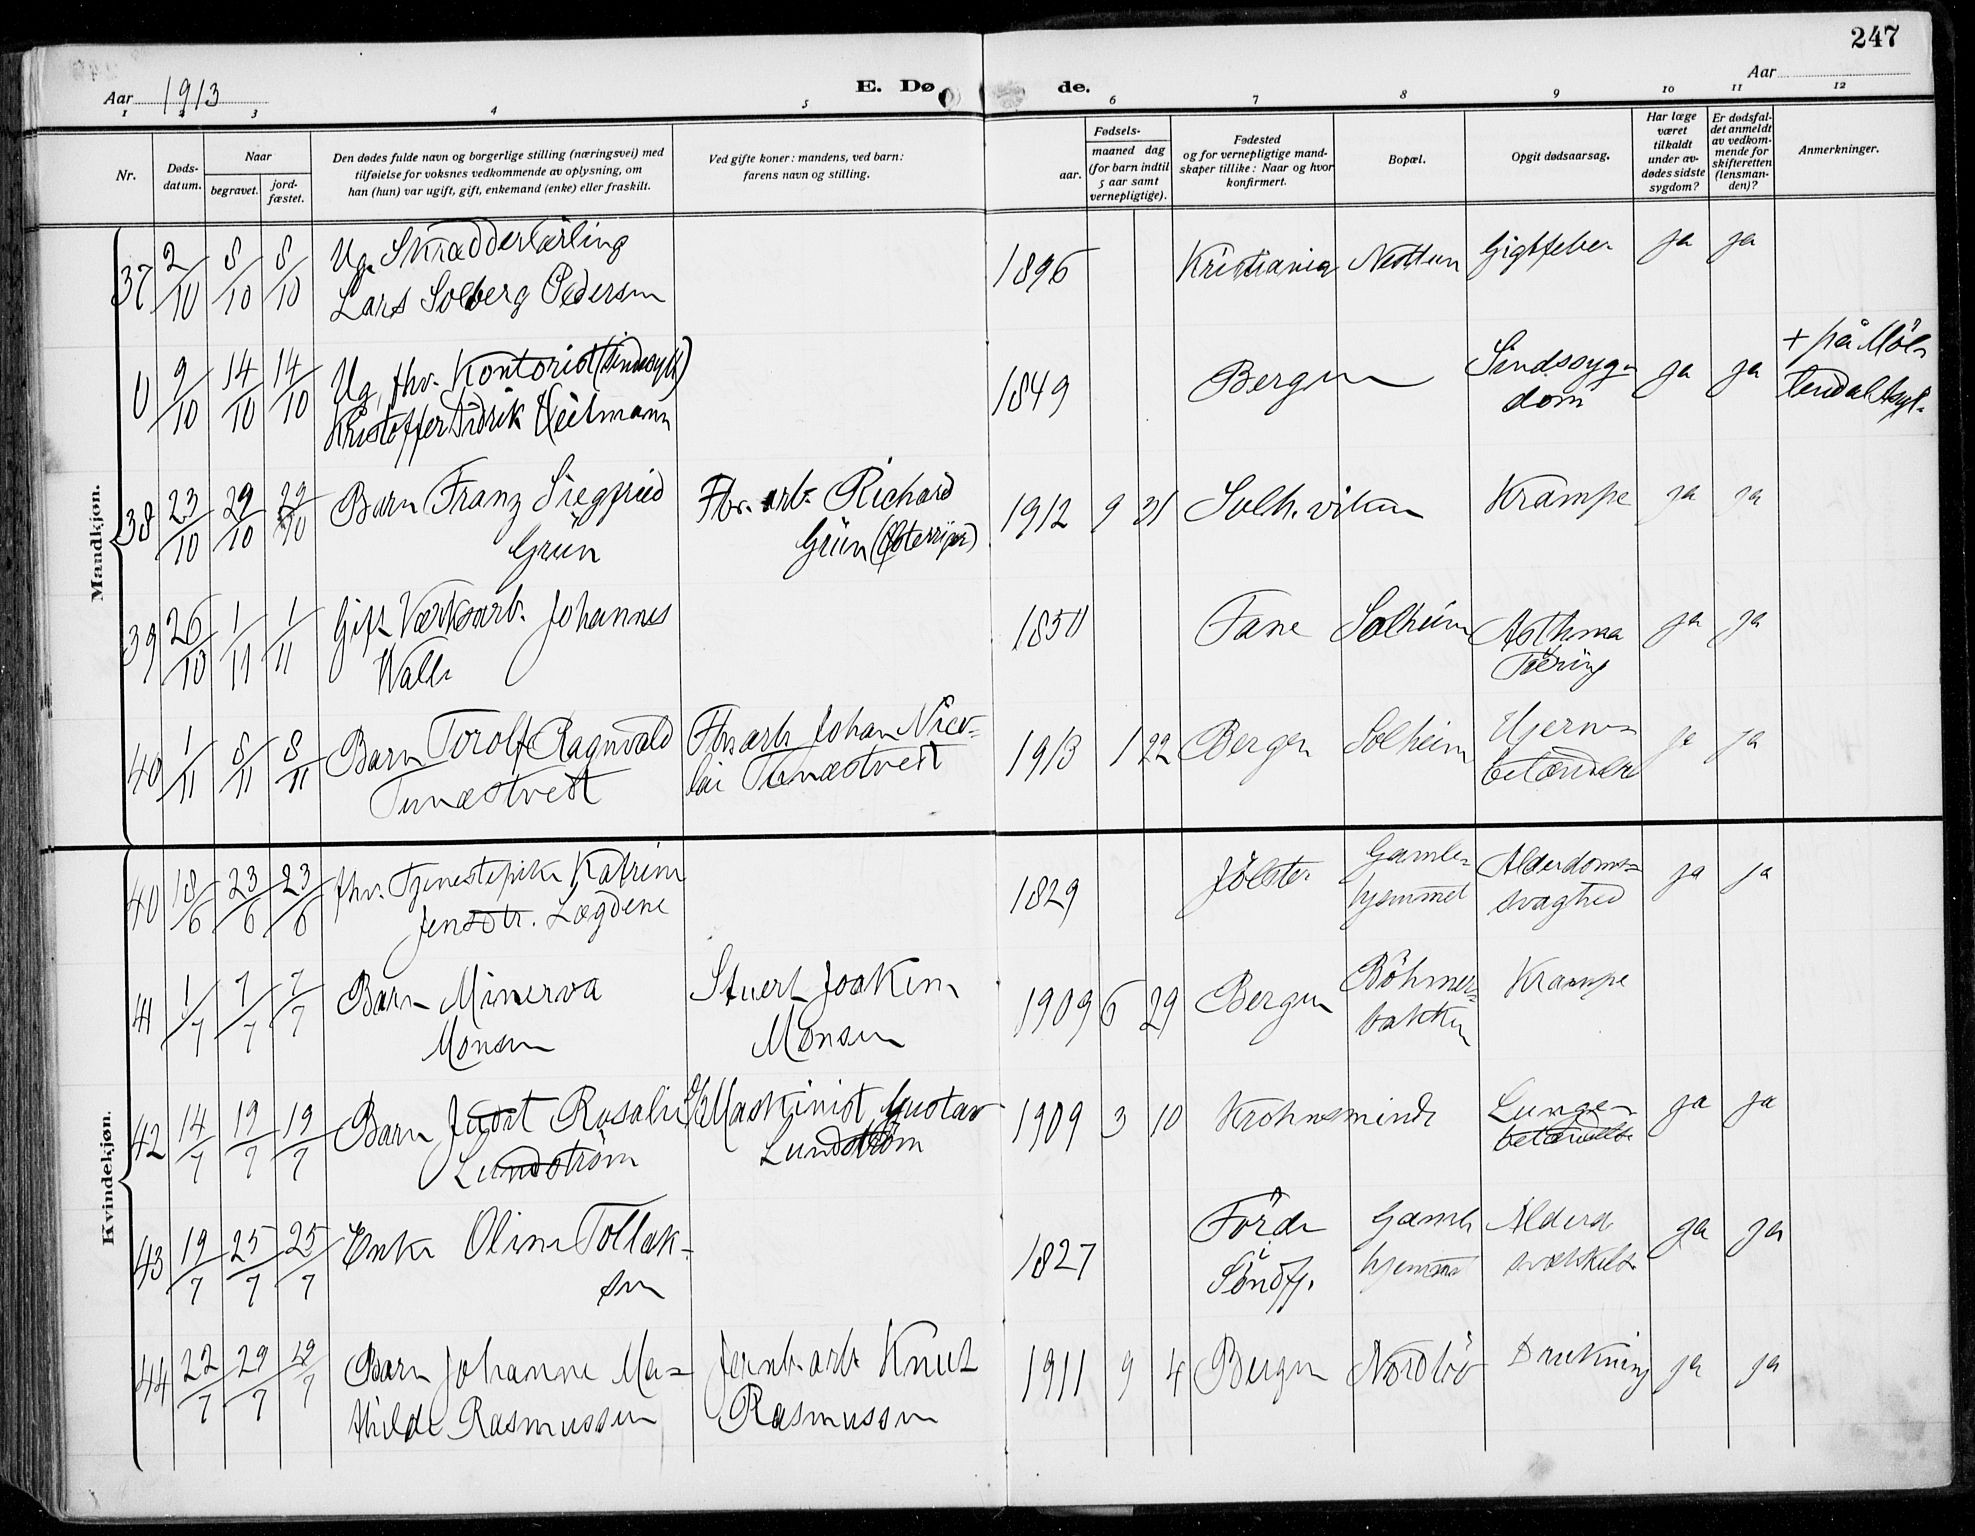 247
Aar 1913
E. Dø de.
Aar
1 2 3 4 5 6 7 8 9 10 11 12
Nr.
Døds-
datum.
Naar
begravet.
jord-
fæstet.
Den dødes fulde navn og borgerlige stilling (næringsvei) med
tilføielse for voksnes vedkommende av oplysning, om
han (hun) var ugift, gift, enkemand (enke) eller fraskilt.
Ved gifte koner: mandens, ved barn:
farens navn og stilling.
Fødsels-
aar.
maaned dag
(for barn indtil
5 aar samt
vernepligtige).
Fødested
og for vernepligtige mand-
skaper tillike: Naar og hvor
konfirmert.
Bopæl.
Opgit dødsaarsag.
Har læge
været
tilkaldt
under av-
dødes sidste
sygdom?
Er dødsfal-
det anmeldt
av vedkom-
mende for
skifteretten
(lensman-
den)?
Anmerkninger.
Mandkjøn.
37 2/10 8/10 8/10 Ug. Skrædderlærling
Lars Solberg Pedersen
1896 Kristiania Nesttun Gigtfeber ja ja
0 9/10 14/10 14/10 Ug. fhv. Kontorist (sindssyk)
Kristoffer Didrik Heilmann
1849 Bergen Sindssyg-
dom ja ja + på Möl-
lendal Asyl.
38 23/10 29/10 29/10 Barn Franz Siegfried
Grün
Fbr. arb. Richard
Grün (Østerriger)
1912 9 31 Solh.viken Krampe ja ja
39 26/10 1/11 1/11 Gift Værksarb. Johannes
Walle
1850 Fane Solheim Asthma
Tæring ja ja
40 1/11 8/11 8/11 Barn Torolf Ragnvald
Tunæstveit
Fbrarb Johan Nico-
lai Tunæstveit
1913 1 22 Bergen Solheim Hjerne-
betændelse ja ja
Kvindekjøn.
40 18/6 23/6 23/6 fhv. Tjenestepike Katrine
Jensdtr. Lægdene
1829 Jölster Gamle-
hjemmet Alderdoms-
svaghed ja ja
41 1/7 7/7 7/7 Barn Minerva
Monsen
Stuert Joakim
Monsen
1909 6 29 Bergen Böhmer-
bakken Krampe
42 14/7 19/7 19/7 Barn Judit Rosalie
Lundström
Maskinist Gustav
Lundström
1909 3 10 Krohnsminde Lunge-
betændelse ja ja
43 19/7 25/7 25/7 Enke Oline Tollak-
sen
1827 Förde
Söndfj. Gamle
hjemmet Alderd
svækkelse ja ja
44 22/7 29/7 29/7 Barn Johanne Ma-
thilde Rasmussen
Jernb.arb. Knut
Rasmussen
1911 9 4 Bergen Nordbö Drukning ja ja